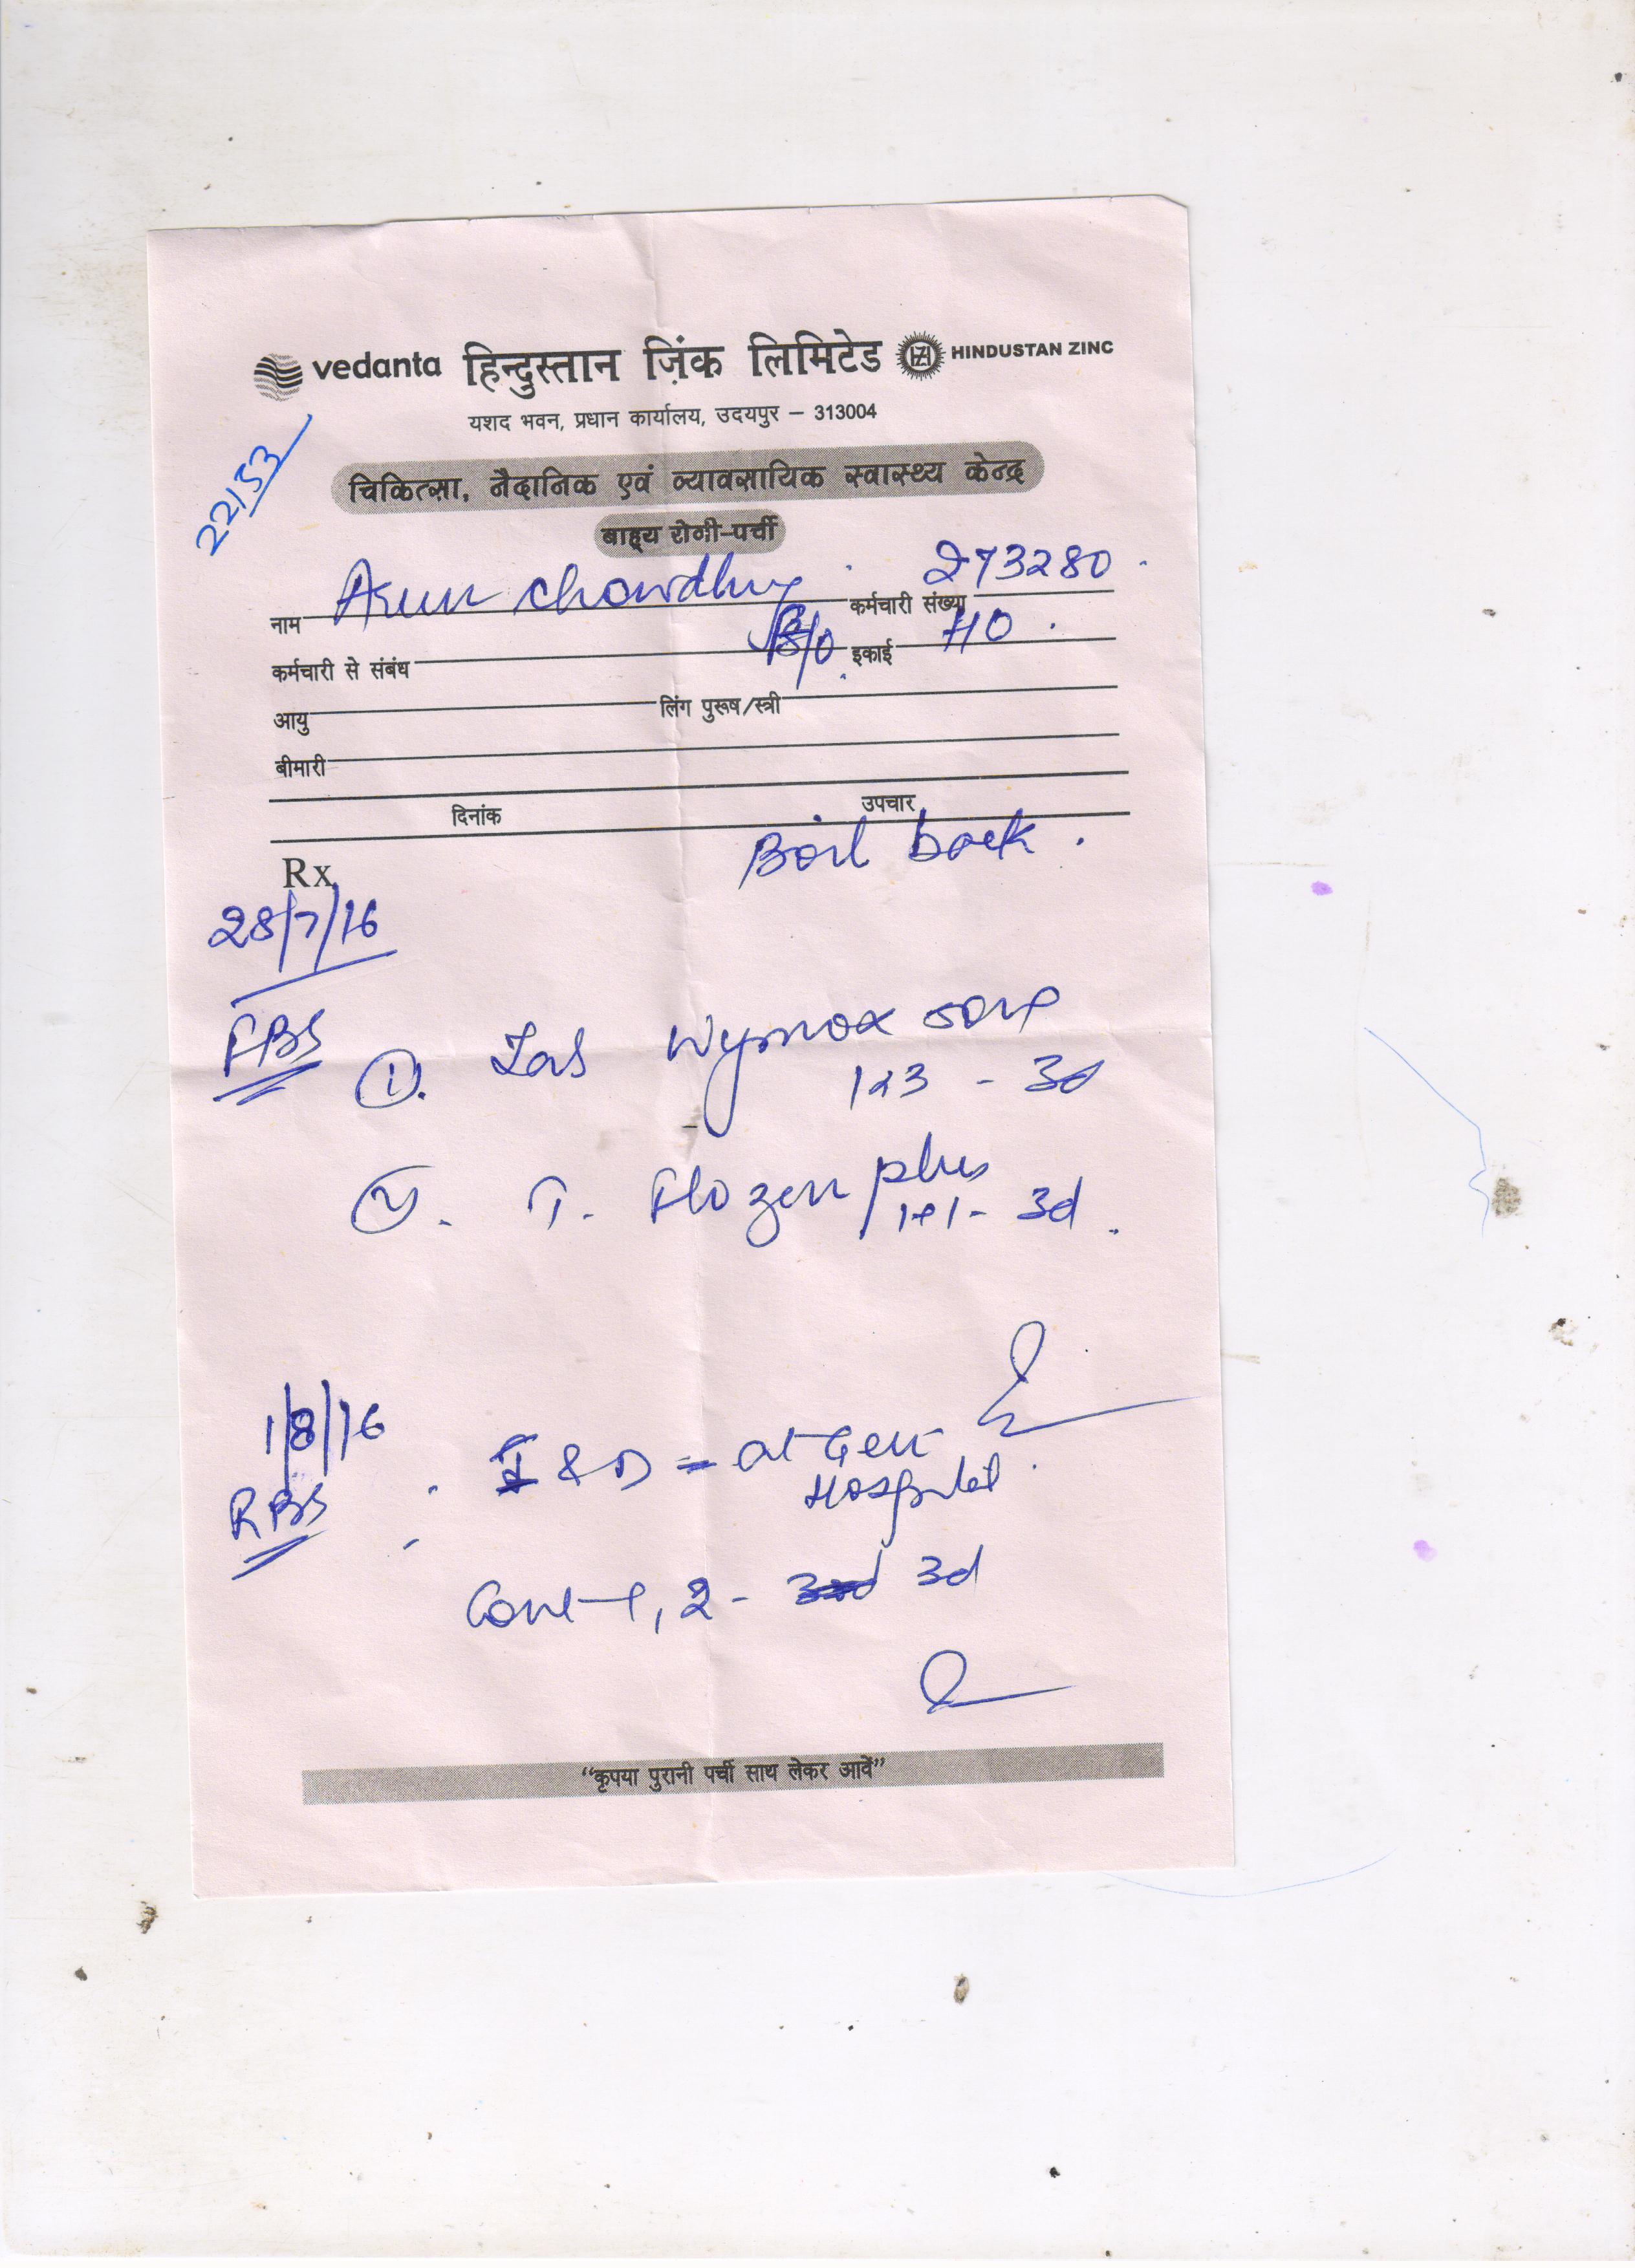 vedanta हिन्दुस्तान ज़िंक लिमिटेड HINDUSTAN ZINC
यशद भवन, प्रधान कार्यालय, उदयपुर – 313004
22153
चिकित्सा, नैदानिक एवं व्यावसायिक स्वास्थ्य केन्द्र
बाह्य रोगी-पर्ची
नाम Arun Chowdhry कर्मचारी संख्या 273280
कर्मचारी से संबंध S/O इकाई HO
आयु लिंग पुरूष/स्त्री
बीमारी
दिनांक उपचार
Rx Boil back.
28/7/16
FBS
1. Tab Wymox
1x3 - 3d
2. T. Flozen plus
1+1 - 3d.
1/8/16 I & D = at Gen
RBS Hospital.
Cont 1, 2 - 3d
“कृपया पुरानी पर्ची साथ लेकर आवें”